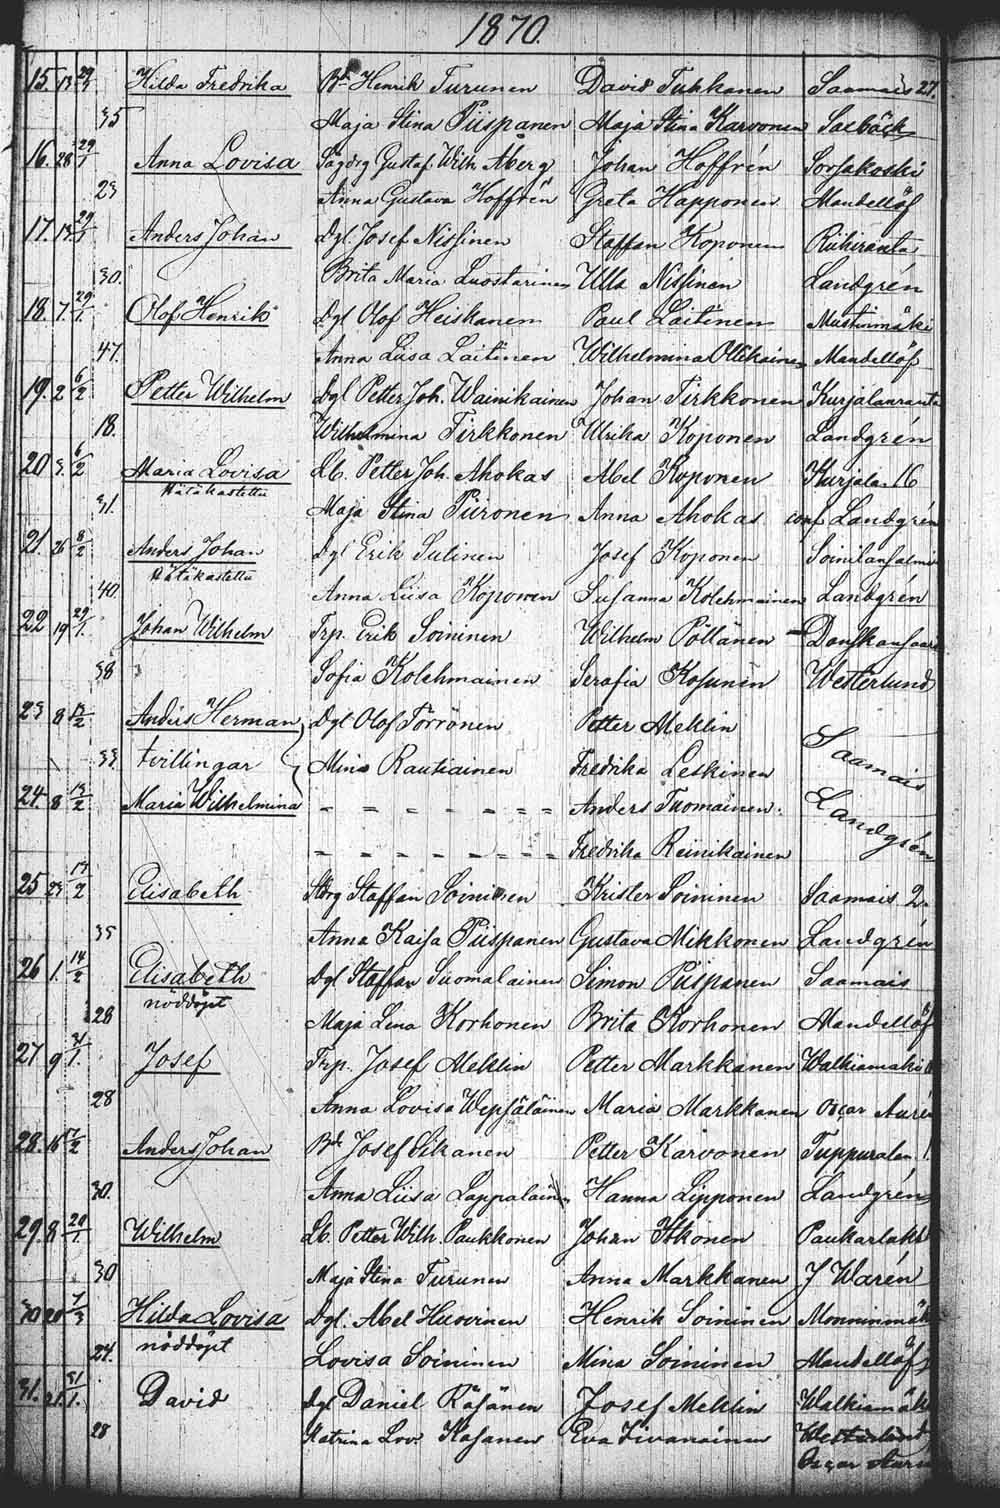 1870.
15. 13 29/1 Hilda Fredrika Bd Henrik Turunen David Tukkanen Saamais 27.
35 Maja Stina Piispanen Maja Stina Karvonen Saebäck
16. 28 29/1 Anna Lovisa Sågdrg Gustaf Wilh. Åberg Johan Hoffrén Sorsakoski
23 Anna Gustava Hoffrén Greta Happonen Mandellöf
17. 13 29/1 Anders Johan Dgl. Josef Nissinen Staffan Koponen Riihiranta
30. Brita Maria Luostarinen Ulla Nissinen Landgrén
18. 7 29/1. Olof Henrik Dgl Olof Heiskanen Paul Laitinen Mustinmäki
47. Anna Liisa Laitinen Wilhelmina Ollikainen Mandellöf
19. 2 6/2 Petter Wilhelm Dgl Petter Joh. Wainikainen Johan Tirkkonen Kurjalanranta
18. Wilhelmina Tirkkonen Ulrika Koponen Landgrén
20 3. 6/2 Maria Lovisa Lb. Petter Joh. Ahokas Abel Koponen Kurjala. 16
Hätäkastettu
31. Maja Stina Piironen Anna Ahokas conf Landgrén
21. 26 8/2 Anders Johan Dgl Erik Sutinen Josef Koponen Soinilansalmi
Hätäkastettu
40. Anna Liisa Koponen Susanna Kolehmainen Landgrén
22 19 29/1. Johan Wilhelm Trp. Erik Soininen Wilhelm Pöllänen Donskansaari
38 Sofia Kolehmainen Serafia Kosunen Westerlund
23 8 13/2 Anders Herman Dgl Olof Törrönen Petter Meklin
33. tvillingar Mina Rautiainen Fredrika Leskinen Saamais
24. 8 13/2 Maria Wilhelmina = = = = = = = Anders Tuomainen. Landgrén
= = = = = = = = Fredrika Reinikainen
25 23 13/2 Elisabeth Stdrg Staffan Soininen Krister Soininen Saamais 2.
35 Anna Kaisa Piispanen Gustava Mikkonen Landgrén
26 1. 14/2 Elisabeth Dgl Staffan Suomalainen Simon Piispanen Saamais
nöddöpt
28 Maja Lena Korhonen Brita Korhonen Mandellöf
27 9 31/1. Josef Trp. Josef Meklin Petter Markkanen Walkiamäki
28 Anna Lovisa Wepsäläinen Maria Markkanen Oscar Aurén
28. 16 17/2 Anders Johan Bd. Josef Sikanen Petter Karvonen Tuppurala. 1.
30. Anna Liisa Lappalainen Hanna Lipponen Landgrén
29. 8 20/1. Wilhelm Lb. Petter Wilh. Paukkonen Johan Itkonen Paukarlaht
30 Maja Stina Turunen Anna Markkanen J Warén
30 20 7/3 Hilda Lovisa Dgl. Abel Huovinen Henrik Soininen Moninmäki
nöddöpt
24. Lovisa Soininen Mina Soininen Mandellöf
31. 21. 31/1. David Dgl Daniel Räsänen Josef Meklin Walkiamäki
28 Katrina Lov. Kosanen Eva Tivanainen Westerlund
Oscar Aurén